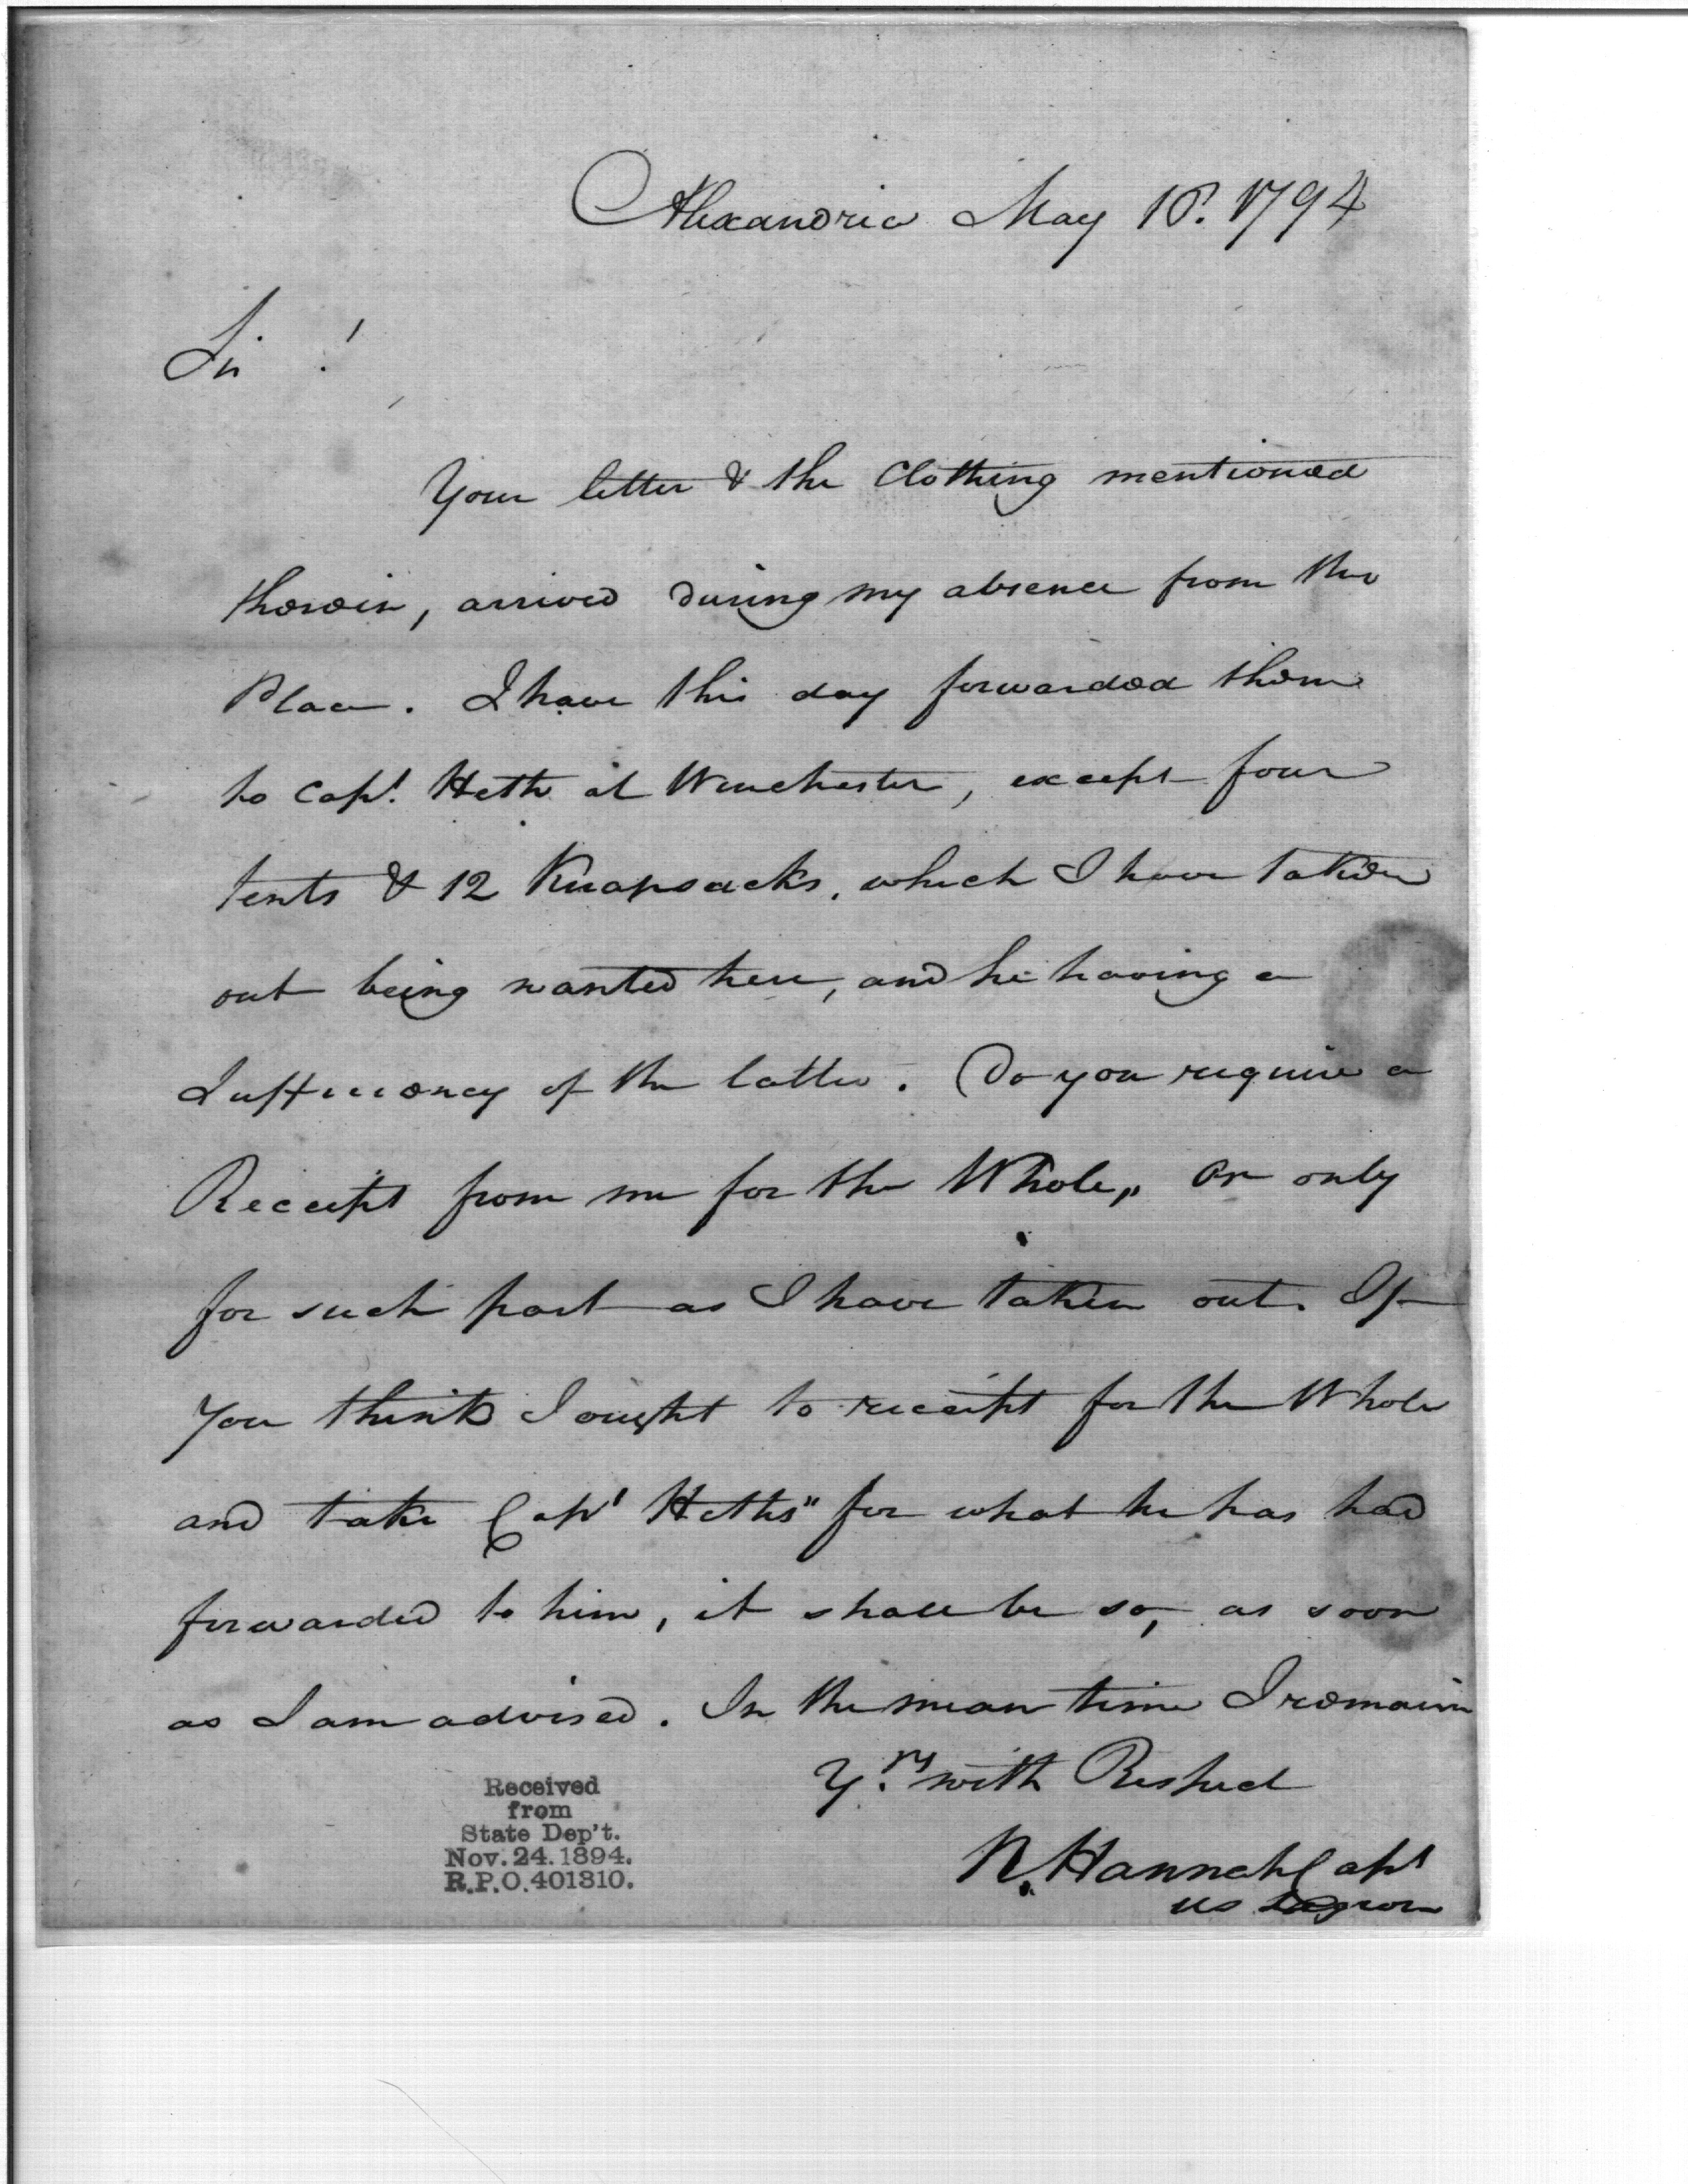 Alexandria May 10. 1794
Sir !
Your letter & the Clothing mentioned
therein, arrived during my absence from this
Place. I have this day forwarded them
to Capt. Heth at Winchester, except four
tents & 12 Knapsacks, which I have taken
out being wanted here, and he having a
Sufficiency of the latter. Do you require a
Receipt from me for the Whole, or only
for such part as I have taken out. If
you think I ought to receipt for the Whole
and take Capt Heths" for what he has had
forwarded to him, it shall be so, as soon
as I am advised. In the mean time I remain
Yrs. with Respect
N. Hannah Capt
US Legion
Received
from
State Dep't.
Nov. 24. 1894.
R.P.O. 401310.